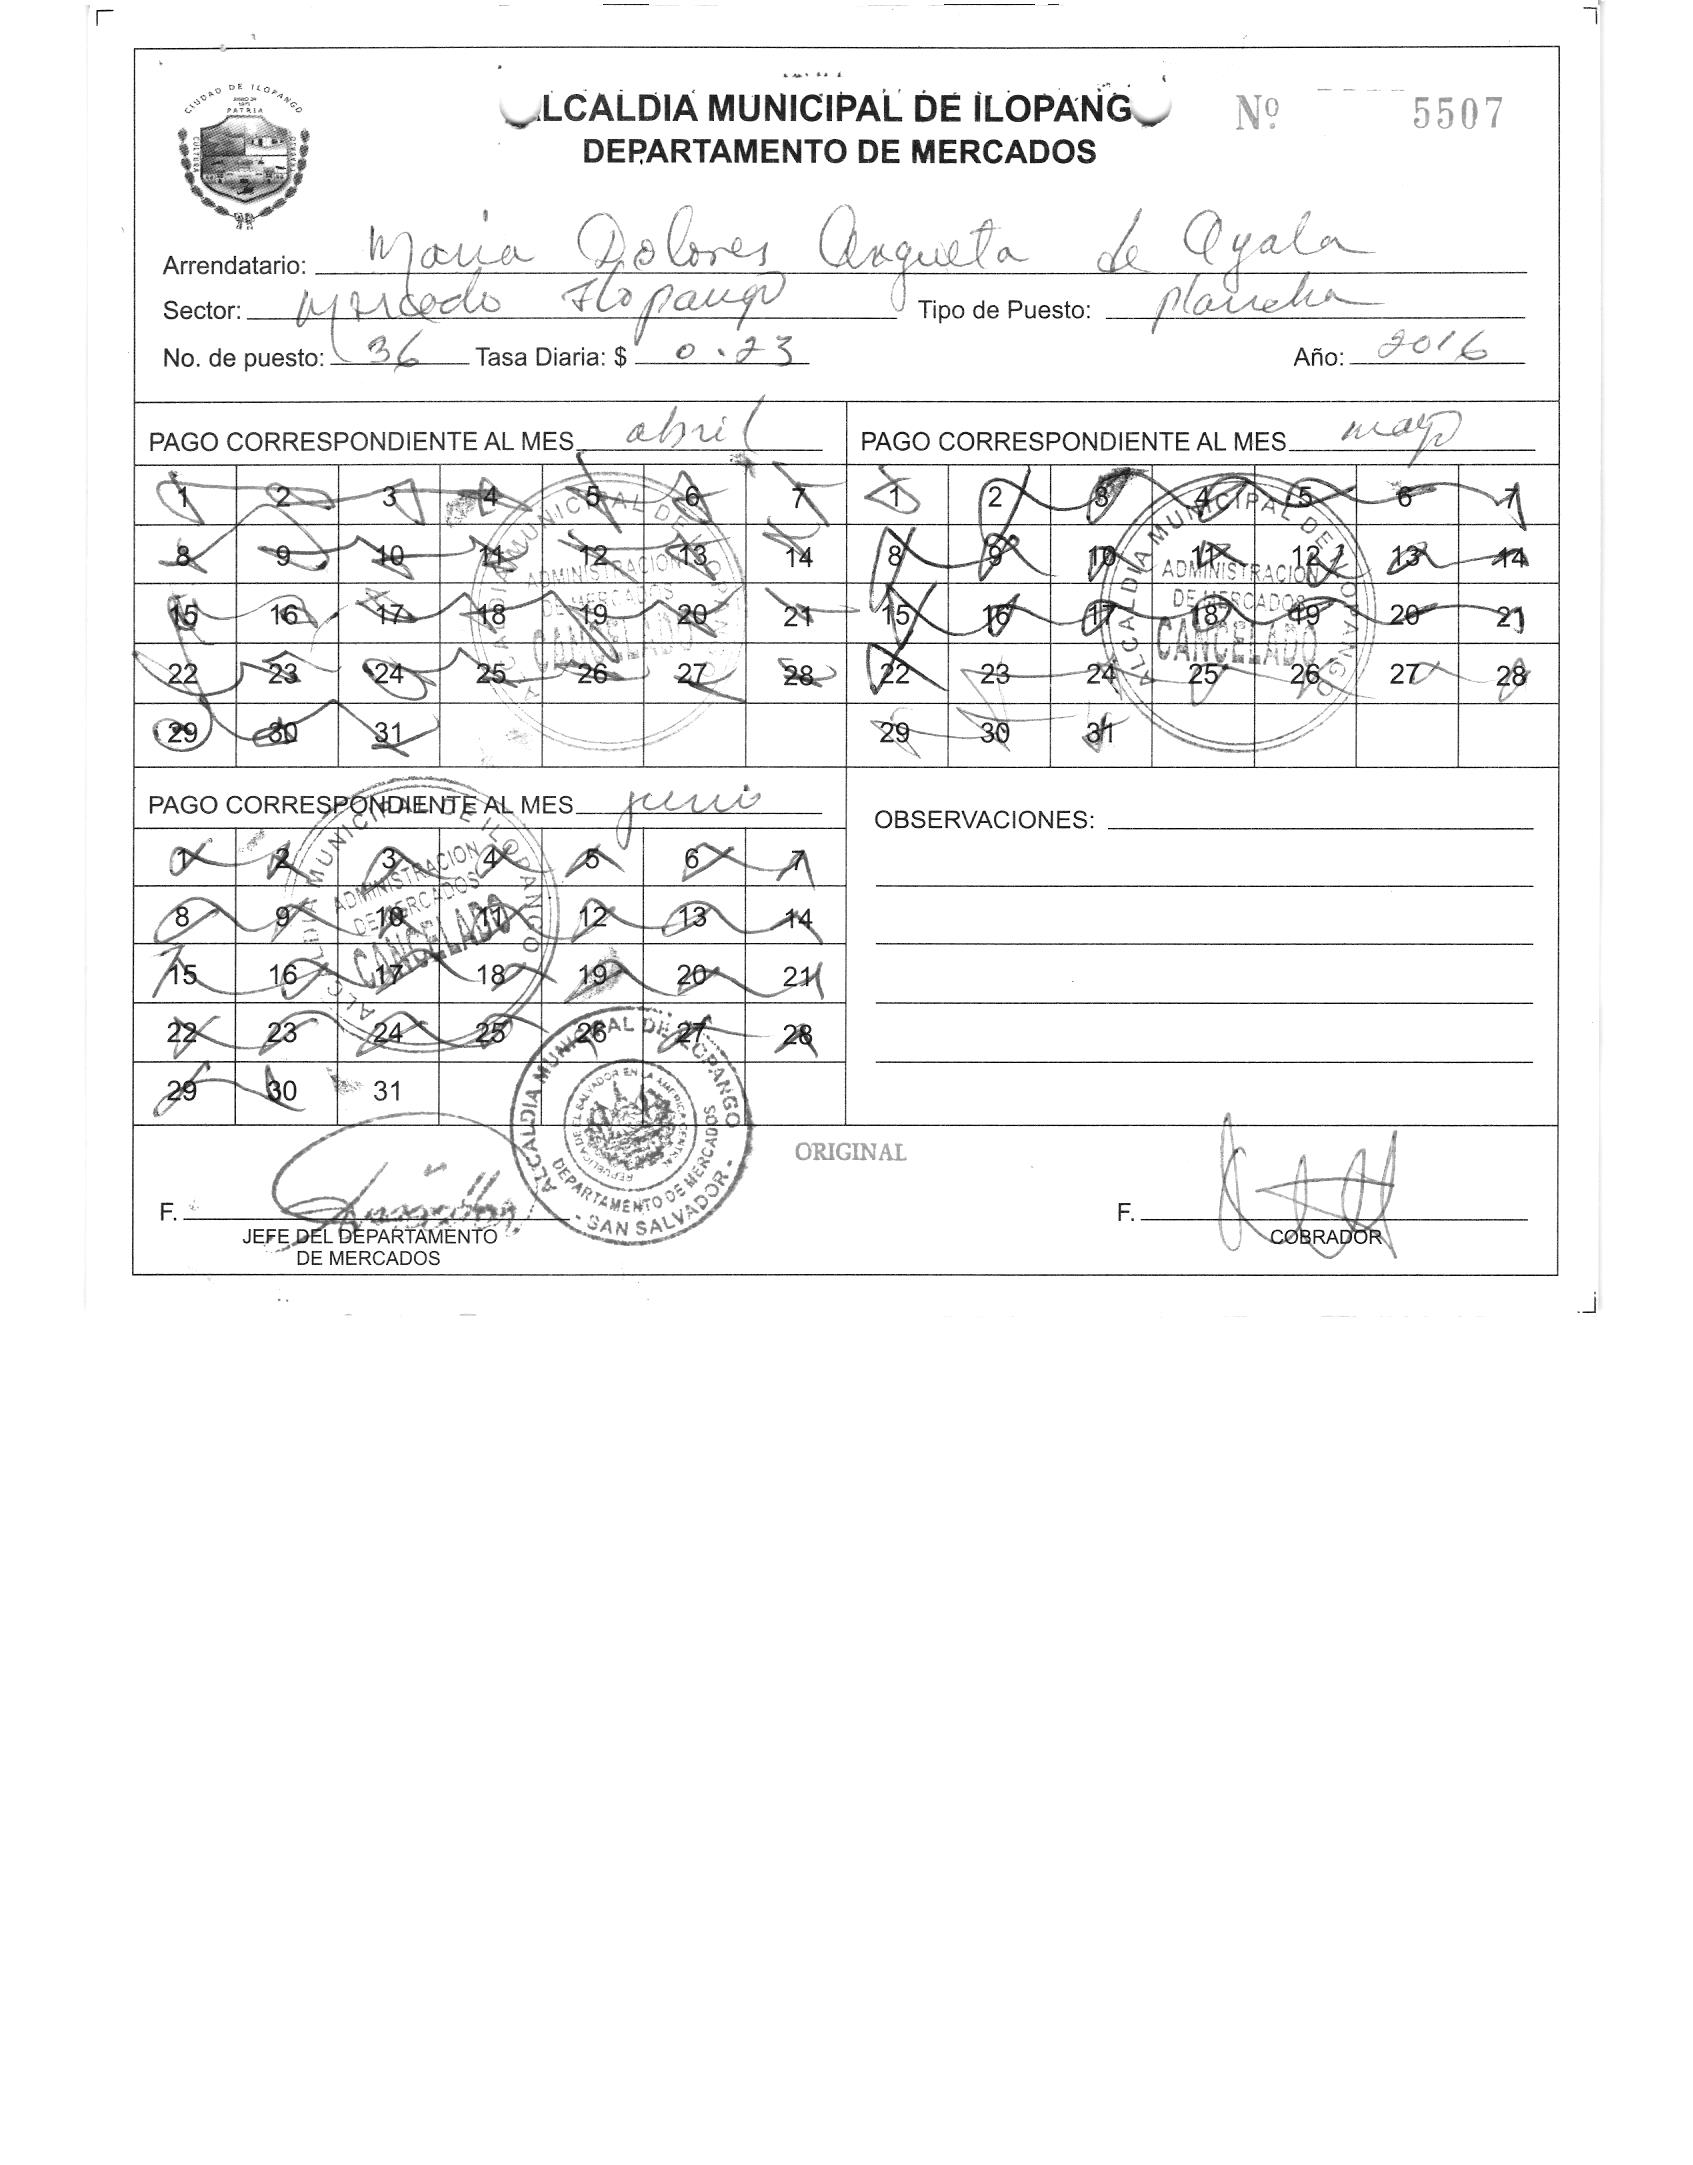 CIUDAD DE ILOPANGO
PATRIA
CULTURA
LCALDIA MUNICIPAL DE ILOPANG
DEPARTAMENTO DE MERCADOS
Nº 5507
Arrendatario: Maria Dolores Argueta de Ayala
Sector: Mercado Ilopango Tipo de Puesto: plancha
No. de puesto: 36 Tasa Diaria: $ 0.23 Año: 2016
PAGO CORRESPONDIENTE AL MES abril
1 2 3 4 5 6 7
8 9 10 11 12 13 14
15 16 17 18 19 20 21
22 23 24 25 26 27 28
29 30 31
ALCALDIA MUNICIPAL DE ILOPANGO
ADMINISTRACION
DE MERCADOS
CANCELADO
PAGO CORRESPONDIENTE AL MES mayo
1 2 3 4 5 6 7
8 9 10 11 12 13 14
15 16 17 18 19 20 21
22 23 24 25 26 27 28
29 30 31
ALCALDIA MUNICIPAL DE ILOPANGO
ADMINISTRACION
DE MERCADOS
CANCELADO
PAGO CORRESPONDIENTE AL MES junio
1 2 3 4 5 6 7
8 9 10 11 12 13 14
15 16 17 18 19 20 21
22 23 24 25 26 27 28
29 30 31
ALCALDIA MUNICIPAL DE ILOPANGO
ADMINISTRACION
DE MERCADOS
CANCELADO
OBSERVACIONES:
ALCALDIA MUNICIPAL DE ILOPANGO
REPUBLICA DE EL SALVADOR EN LA AMERICA CENTRAL
DEPARTAMENTO DE MERCADOS
- SAN SALVADOR -
ORIGINAL
F.
JEFE DEL DEPARTAMENTO
DE MERCADOS
F.
COBRADOR